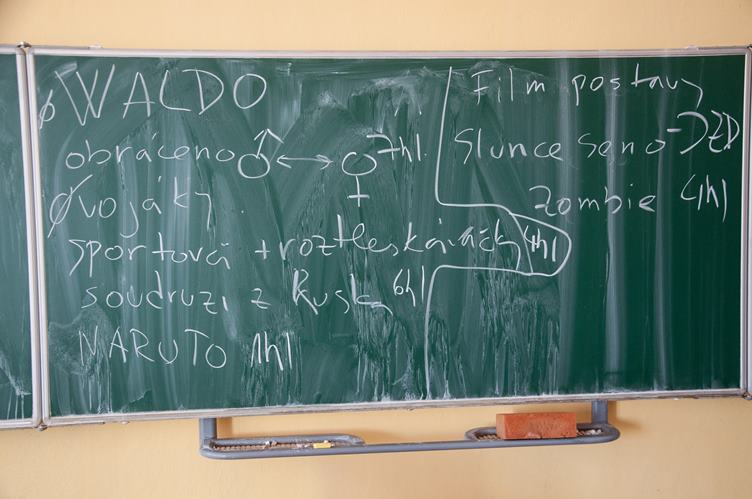 Ø WALDO
obráceno ♂ ↔ ♀ 7hl.
Øvojáky.
sportová + roztleskávačky 4hl
soudruzi z Ruska 6hl
NARUTO 1hl
Film postavy
Slunce seno - JZD
Zombie 4hl